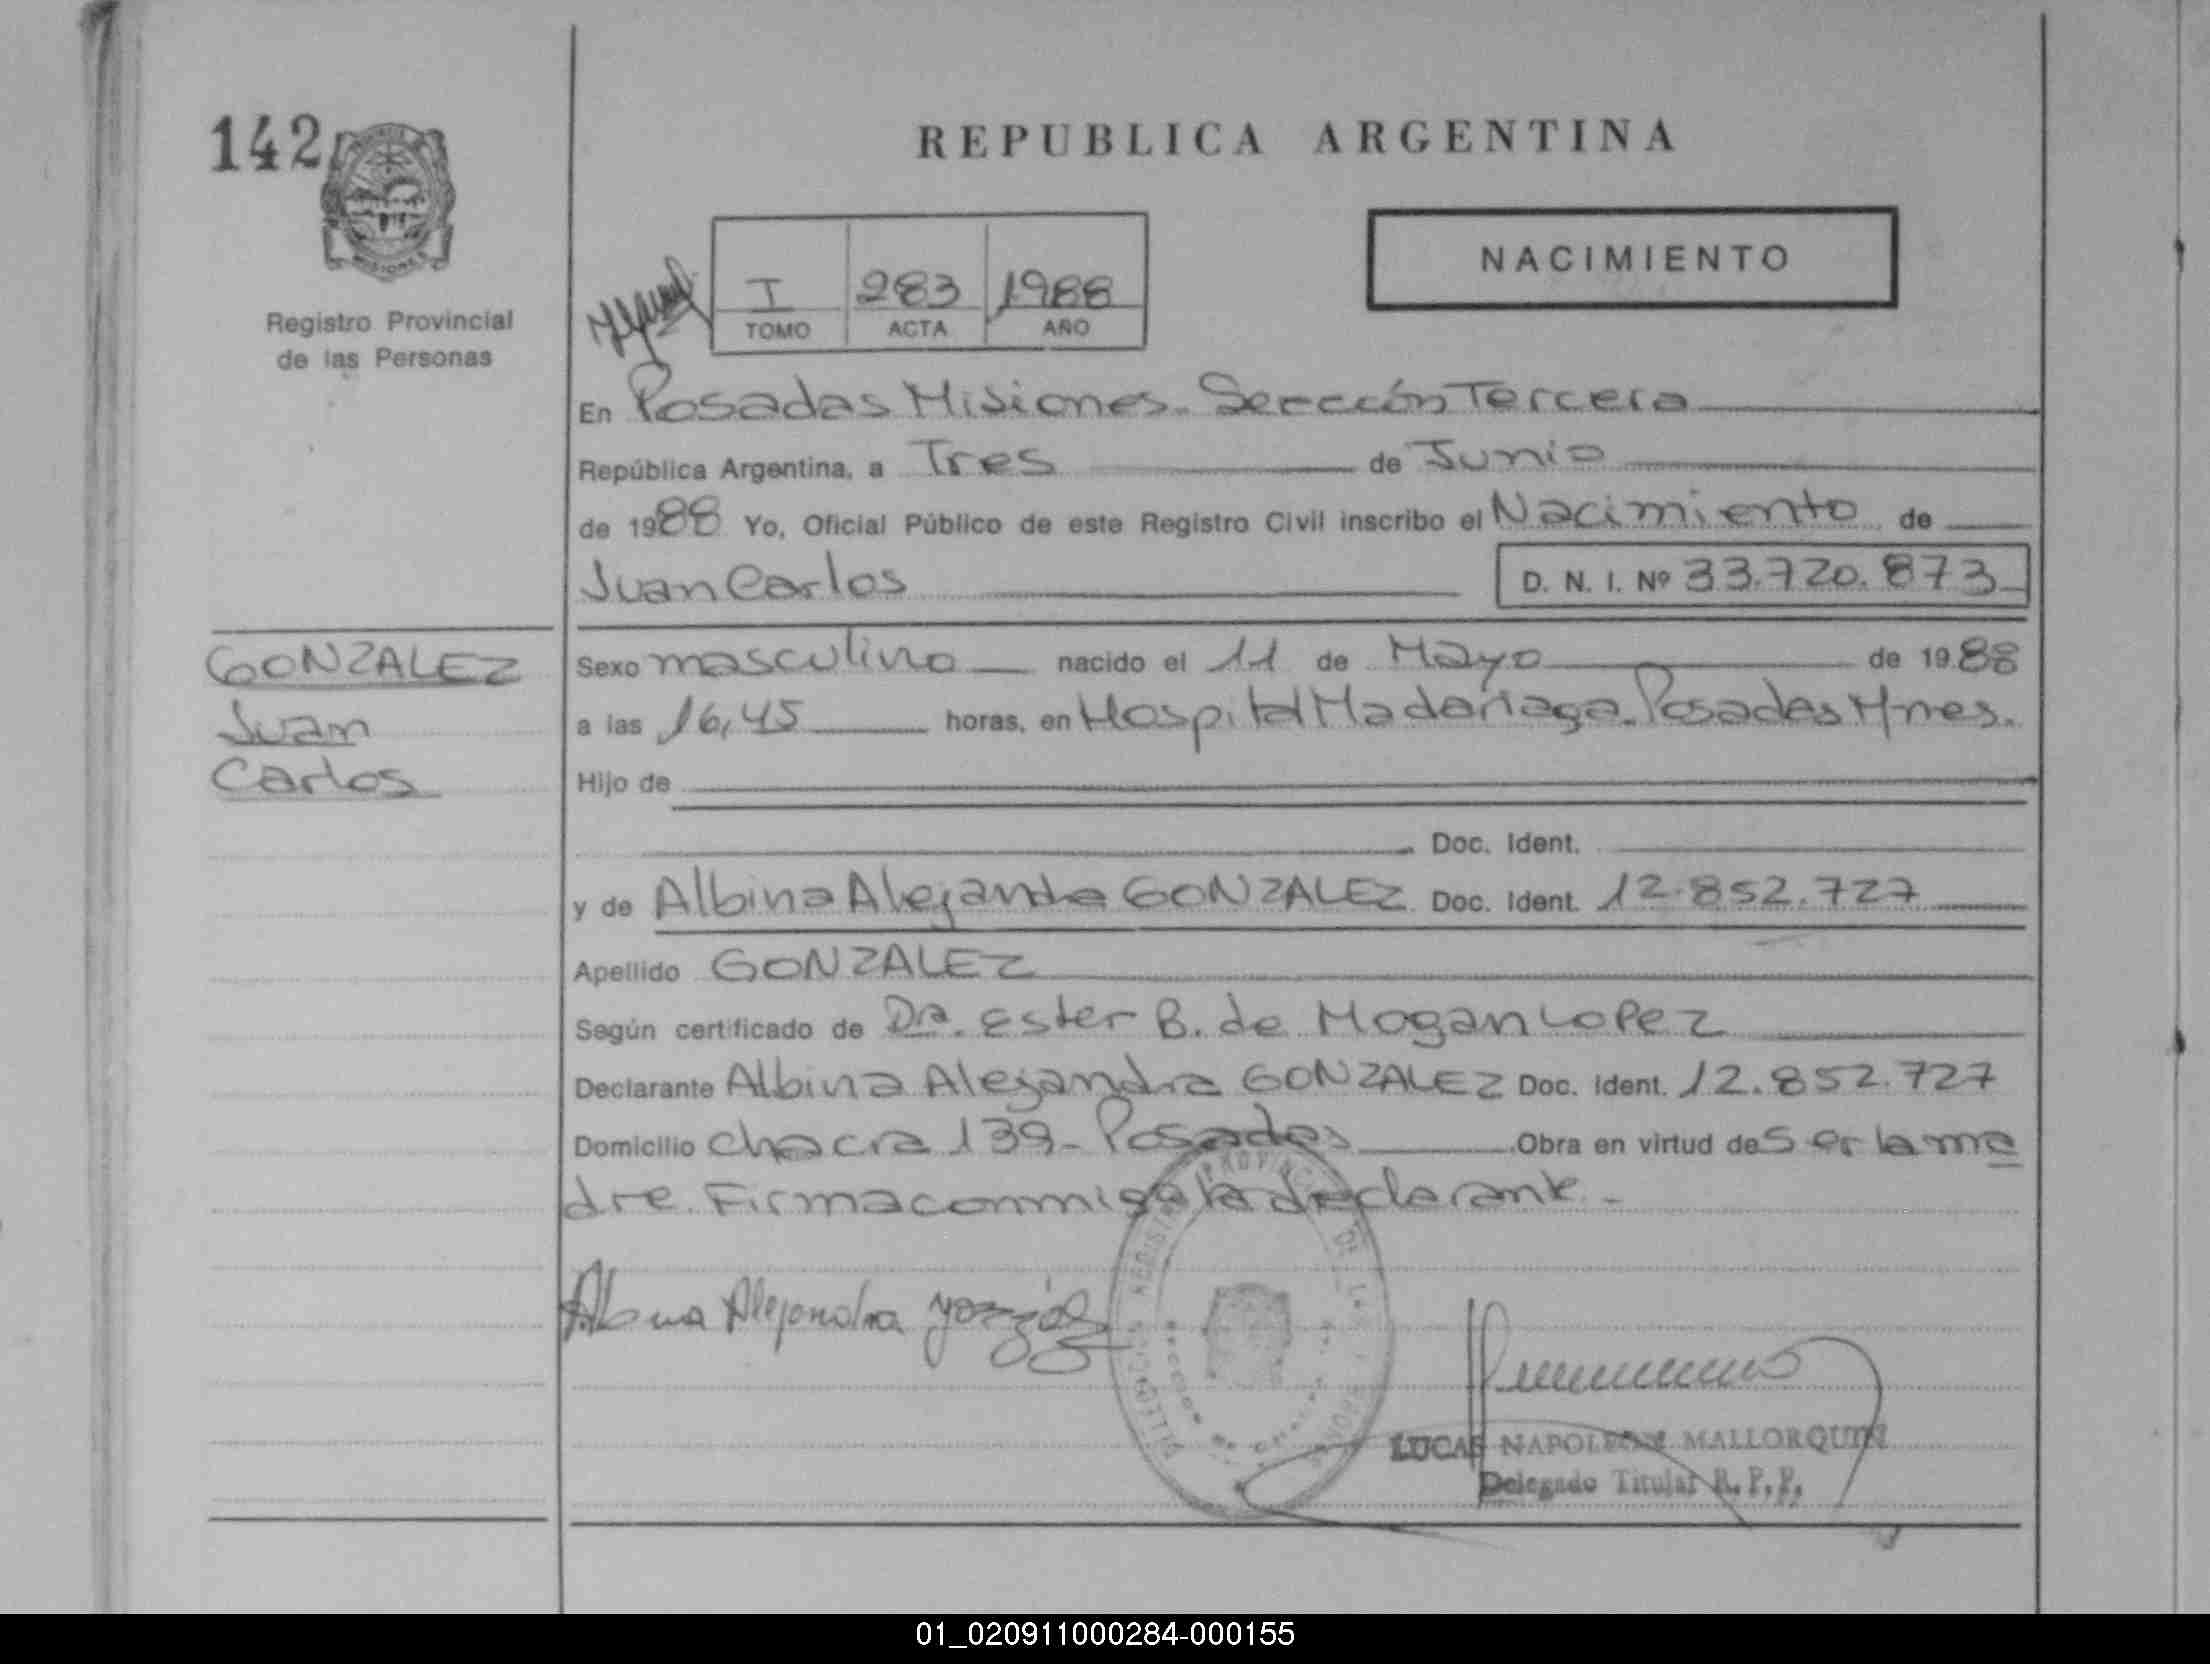 142
REPUBLICA ARGENTINA
MISIONES
Registro Provincial
de las Personas
I 283 1988
TOMO ACTA AÑO
NACIMIENTO
En Posadas Misiones. Seccción Tercera
República Argentina, a Tres de Junio
de 1988 Yo, Oficial Público de este Registro Civil inscribo el Nacimiento de
Juan Carlos D. N. I. Nº 33.720.873
GONZALEZ
Juan
Carlos
Sexo masculino nacido el 11 de Mayo de 1988
a las 16,45 horas, en Hospital Madariaga. Posadas Mnes.
Hijo de
Doc. Ident.
y de Albina Alejandra GONZALEZ Doc. Ident. 12.852.727
Apellido GONZALEZ
Según certificado de Dra. Ester B. de Mogan Lopez
Declarante Albina Alejandra GONZALEZ Doc. Ident. 12.852.727
Domicilio chacra 139- Posadas Obra en virtud de Ser la ma
dre. Firma conmigo la declarante.-
Albina Alejandra González
LUCAS NAPOLEON MALLORQUIN
Delegado Titular R.P.P.
01_020911000284-000155